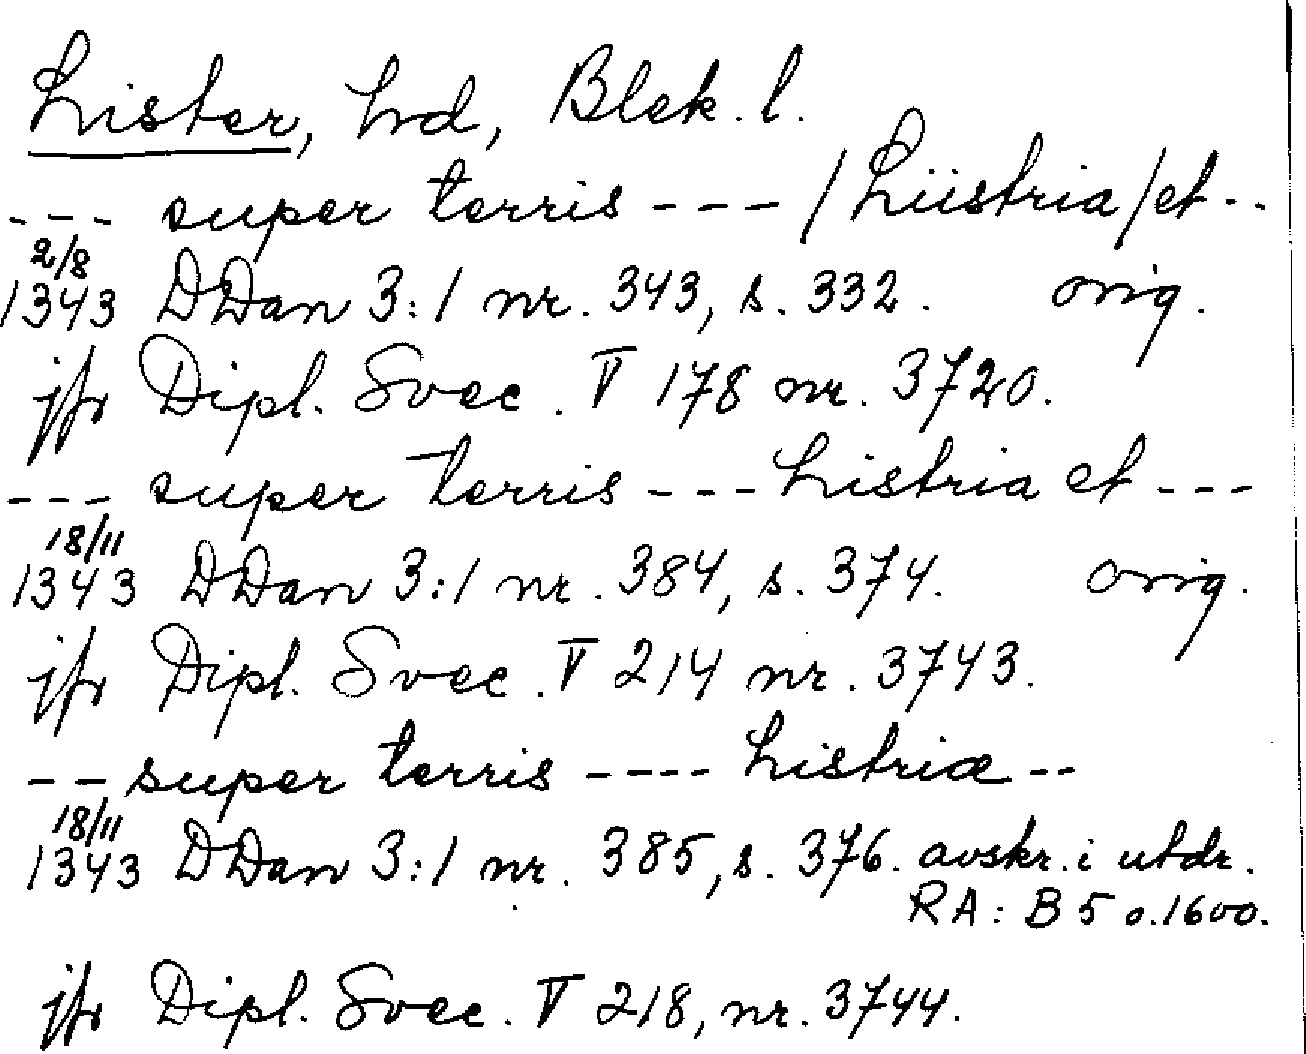 Lister, hd, Blek. l.
--- super terris --- /Liistria/et --
2/8
1343 DDan 3:1 nr. 343, s. 332. orig.
jfr Dipl. Svec. V 178 nr. 3720.
--- super terris --- Listria et ---
18/11
1343 DDan 3:1 nr. 384, s. 374. orig.
jfr Dipl. Svec. V 214 nr. 3743.
-- super terris ---- Listriæ --
18/11
1343 DDan 3:1 nr. 385, s. 376. avskr. i utdr.
RA: B 5 o. 1600.
jfr Dipl. Svec. V 218, nr. 3744.